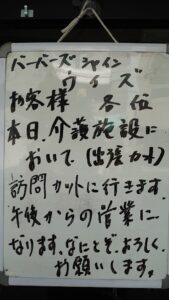 バーバーズシャイン
ウィズ
お客様 各位
本日、介護施設に
おいて(出張カット)
訪問カットに行きます。
午後からの営業に
なります、なにとぞ、よろしく、
お願いします。